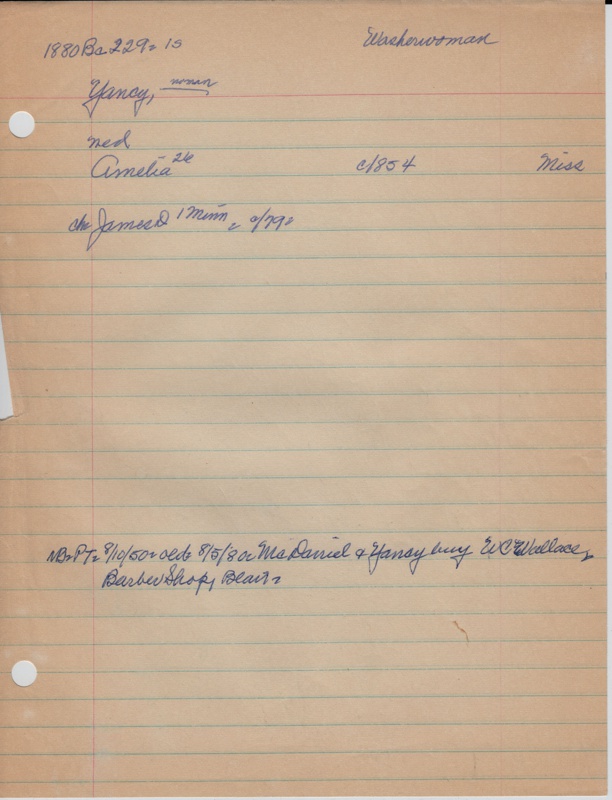 1880 Bs 229 = 15 Washerwoman
Yancy, woman
ned
Amelia 26 c/854 Miss
ch James D 1 Minn = 9/79 =
NB = PT = 8/10/50 = olds 8/5/80 = McDaniel & Yancy buy WC Wallace,
Barber Shop, Blair =